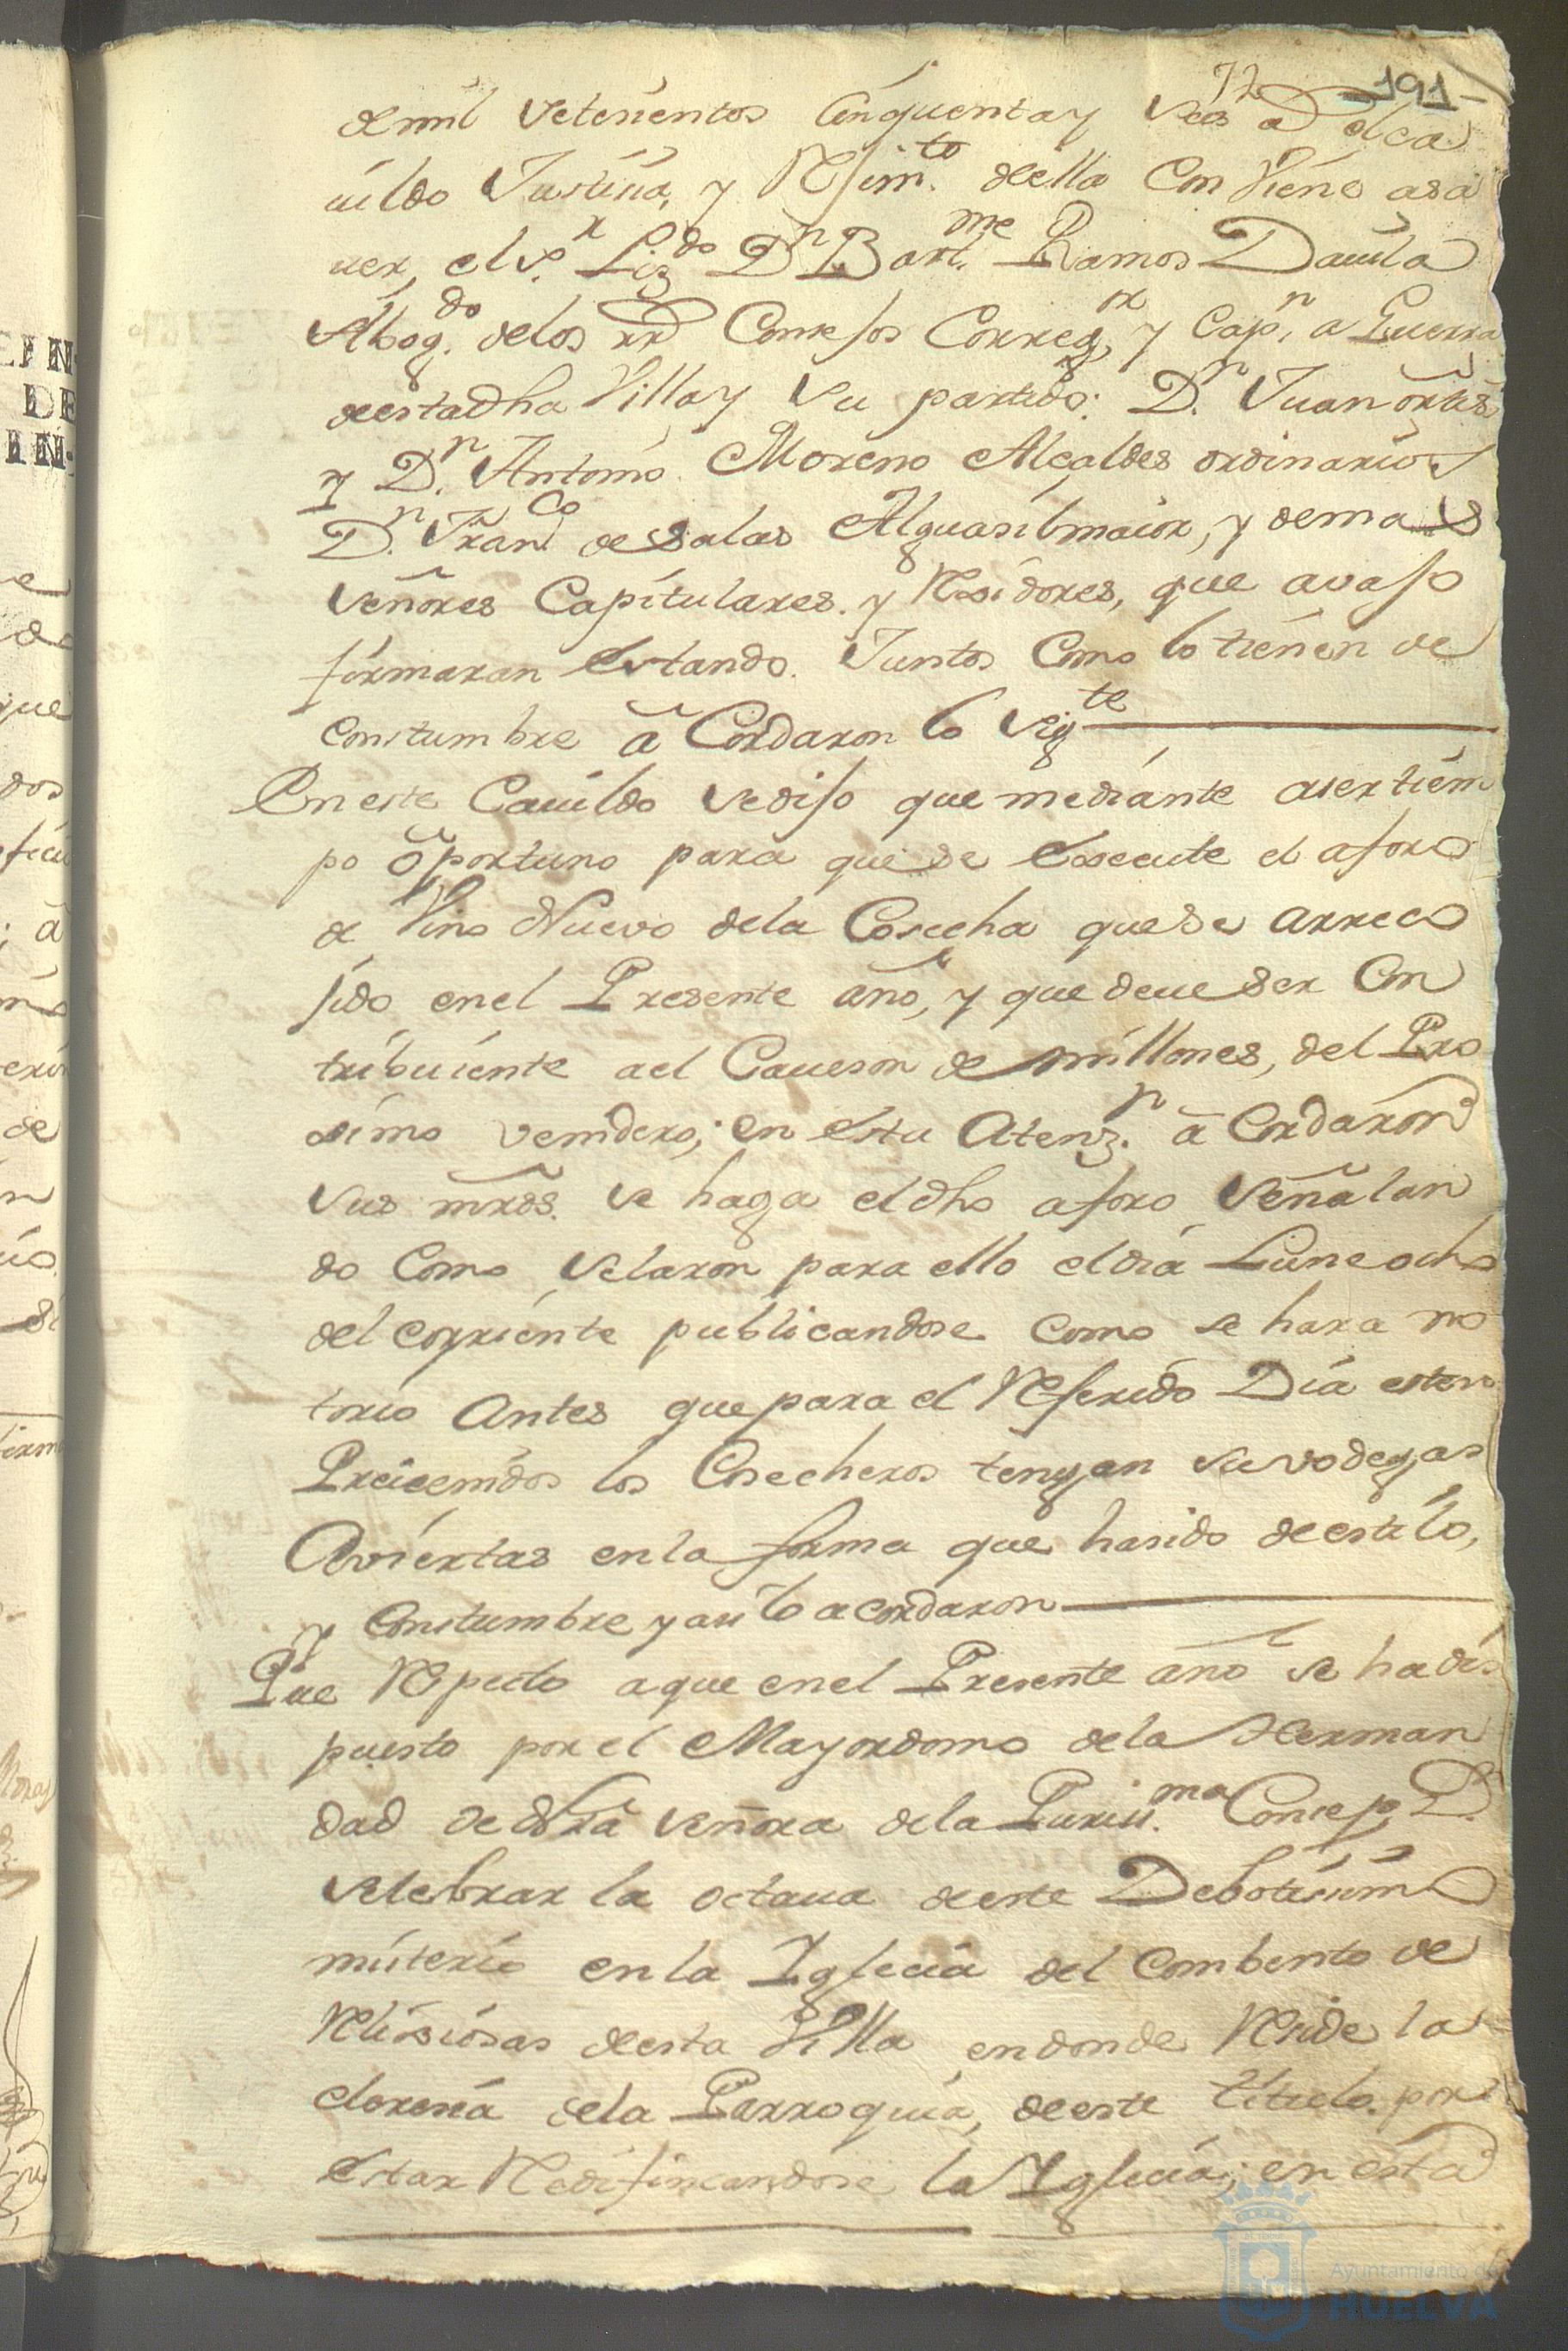 72 191-
de mil setesientos Cinquenta y seis a el Ca
uildo Justisia, y Rejim.to de ella Combiene asa
uer, el s.r Liz.do D.n Bart.me Ramos Dauila
Abog.do de los rr.s Consejos Correg.r y Cap.n a Guerra
de esta dha Villa y su partido: D.n Juan ortis
y D.n Antonio Moreno Alcaldes ordinarios
D.n Fran.co de Salas Alguasil maior, y demas
señores Capitulares. y Resídores, que avajo
firmaran estando. Juntos Como lo tienen de
constumbre a Cordaron lo sig.te
En este Cauildo se dijo que mediante aser tiem
po oportuno para que se Execute el aforo
de Vino Nuevo de la Cosecha que se a rreco
jido en el Presente año, y que deue ser Con
tribuiente a el Caueson de millones, del Pro
simo venidero; en esta Atenz.n a Cordaron
sus mrds. se haga el dho aforo señalan
do Como selaron para ello el dia Lune ocho
del corriente publicandose como se hara no
torio Antes que para el Referido Dia esten
Preicenidos los Cosecheros tengan su vodegas
Aviertas en la forma que hasido de estilo,
y Constumbre y asi lo acordaron
Que Respecto a que en el Presente año se ha dis
puesto por el Mayordomo de la Herman
dad de nra señora de la Puriss.ma Consep.n
selebrar la octaua de este Debotisimo
misterio en la Iglecia del Combento de
Relijiosas de esta Villa en donde Reside la
cloresia de la Parroquia, de este titulo. por
estar Redifincandose la Iglecia; en esta
Ayuntamiento de
HUELVA